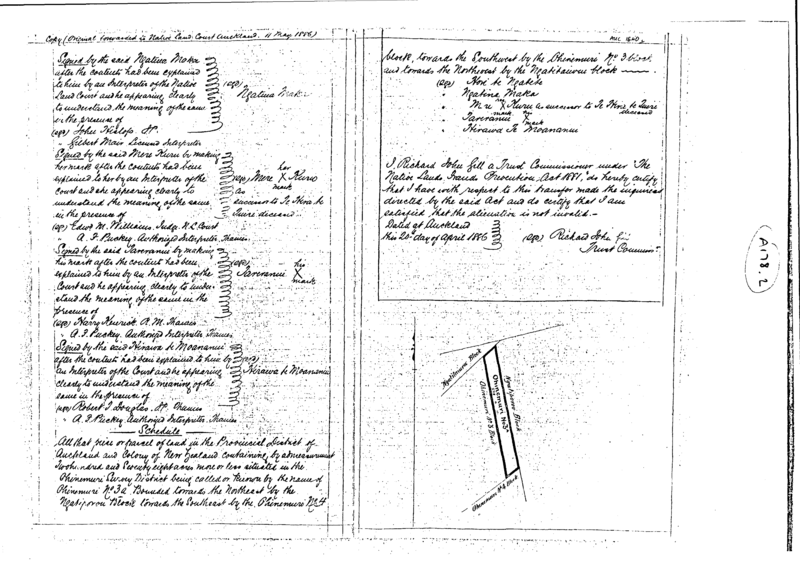 Copy (Original forwarded to Native Land Court Auckland. 11 May 1886)
Signed by the said Ngatina Maka
after the contents had been explained
to him by an Interpreter of the Native
Land Court and he appearing clearly
to understand the meaning of the same
in the presence of
(sgd) Ngatina Maka
(sgd) John Hislop. JP.
" Gilbert Mair Licensed Interpreter
Signed by the said Mere Kuru by making
her mark after the contents had been
explained to her by an Interpreter of the
Court and she appearing clearly to
understand the meaning of the same
in the presence of
(sgd) Mere X Kuru
her
mark
as
successor to Te Hira te
Tuiri deceased
(sgd) Edwd M. Williams. Judge. N.L. Court
A. J. Puckey. Authorized Interpreter. Thames
Signed by the said Tararanui by making
his mark after the contents had been
explained to him by an Interpreter of the
Court and he appearing clearly to under-
stand the meaning of the same in the
presence of
(sgd) Tararanui X
his
mark
(sgd) Harry Kenrick. R.M. Thames
" A. J. Puckey. Authorized Interpreter Thames
Signed by the said Hirawa te Moananui
after the contents had been explained to him by
an Interpreter of the Court and he appearing
clearly to understand the meaning of the
same in the presence of
(sgd) Hirawa te Moananui
(sgd) Robert J. Douglas. JP. Thames
" A. J. Puckey Authorized Interpreter. Thames
Schedule
All that piece or parcel of land in the Provincial District of
Auckland and Colony of New Zealand containing by admeasurement
Two hundred and Seventy eight acres more or less situated in the
Ohinemuri Survey District being called or known by the name of
Ohinemuri No 3a Bounded towards the Northeast by the
Block towards the Southeast by the Ohinemuri No 4
block, towards the Southwest by the Ohinemuri No 3 block
and towards the Northwest by the block
(sgd)
" Ngatina Maka
" Mere X Kuru as successor to Te Hira te Tuiri
her
mark
deceased
" Tararanui X
mark
" Hirawa Te Moananui
I, Richard John Gill a Trust Commissioner under "The
Native Lands Frauds Prevention Act 1881", do hereby certify
that I have with respect to this transfer made the inquiries
directed by the said Act and do certify that I am
satisfied that the alienation is not invalid.
Dated at Auckland
this 20th day of April 1886
(sgd) Richard John Gill
Trust Commissr
A178.2
Ohinemuri No 3a
Ohinemuri No 3 Block
Ohinemuri No 4 Block